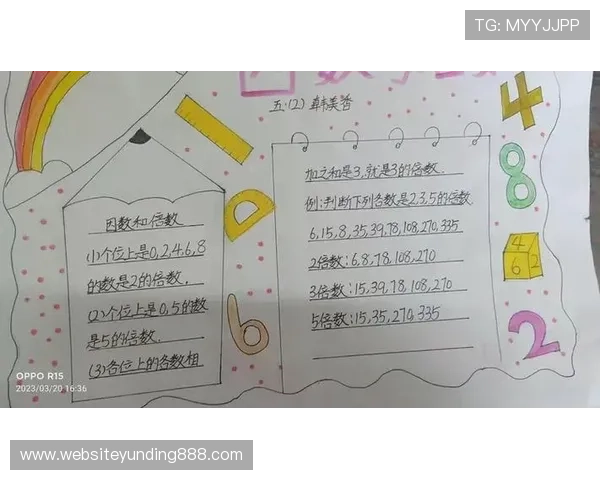 TG: MYYJJPP
五·(2) 韩美香
因数和倍数
(1)个位上是0,2,4,6,8
的数是2的倍数.
(2)个位上是0,5的数
是5的倍数.
(3)各位上的各数相
加之和是3,就是3的倍数.
例:判断下列各数是2,3,5的倍数
6,15,8,35,39,78,108,270,335
2倍数:6,8,78,108,270
3倍数:15,39,78,108,270
5倍数:15,35,270,335
4
8
4
6 2
2
6
OPPO R15
2023/03/20 16:36
www.websiteyunding888.com